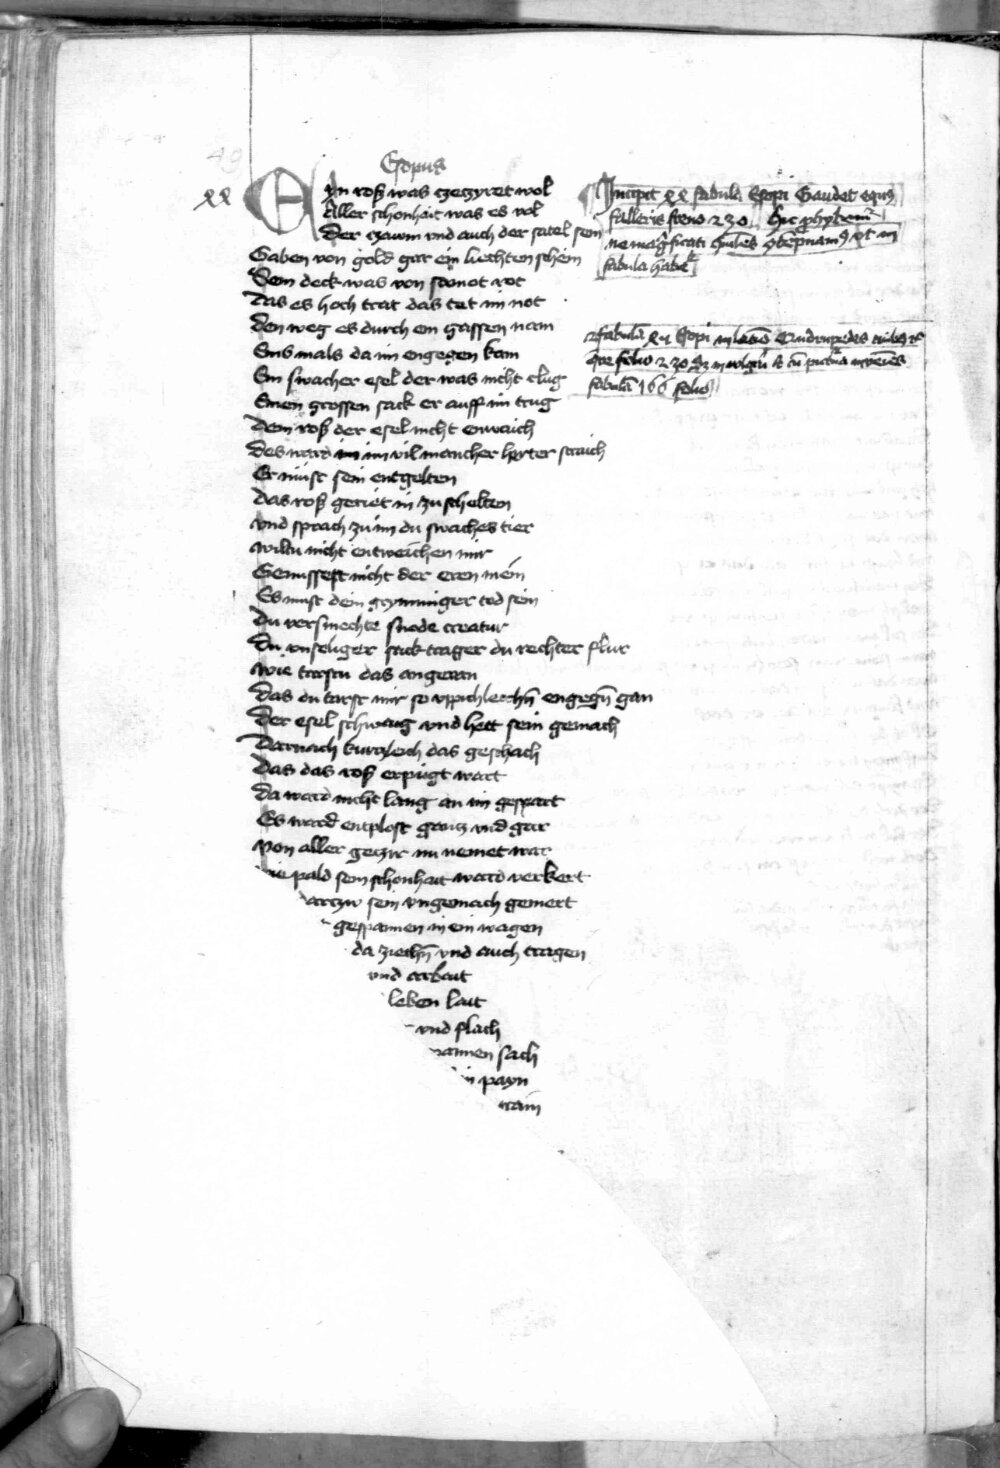 Esopus
xx
EYn roß was gecziret wol
Aller schonhait was es vol
Der czawm vnd auch der satel sein
Gaben von gold gar ein liechten schein
Sein deck was von samet rot
Das es hoch trat das tet im not
Den weg es durch ein gassen nam
Eins mals da im engegen kam
Ein swacher esel der was nicht clug
Einen grossen sack er auff im trug
Dem roß der esel nicht entwaich
Des ward im vil mancher herter straich
Er must sein entgelten
Das roß geriet in zu schelten
Vnd sprach zu im du swaches tier
Wiltu nicht entweichen mir
Genussest nicht der eren mein
Es must dein grymmiger tod sein
Du versmechte snode creatur
Du vnseliger sack trager du rechter
Wie tarstu das
Das du tarst mir so engegn gan
Der esel schwaig vnd hett sein gemach
Darnach kurczleich das geschach
Das das roß erpugt wart
Da ward nicht lang an im gespart
Es ward entplost gancz vnd gar
Von aller geczir nu nemet war
wie pald sein schonhait ward verkert
darczw sein vngemach gemert
gespannen in ein wagen
da ziechn vnd auch tragen
vnd arbait
leben lait
vnd slach
sach
in payn
Incipit xx fabula Esopi Gaudet equus
faleris freno 230
fabula
fabula Esopi Quadrupedes
folio 230
fabula 166 folio